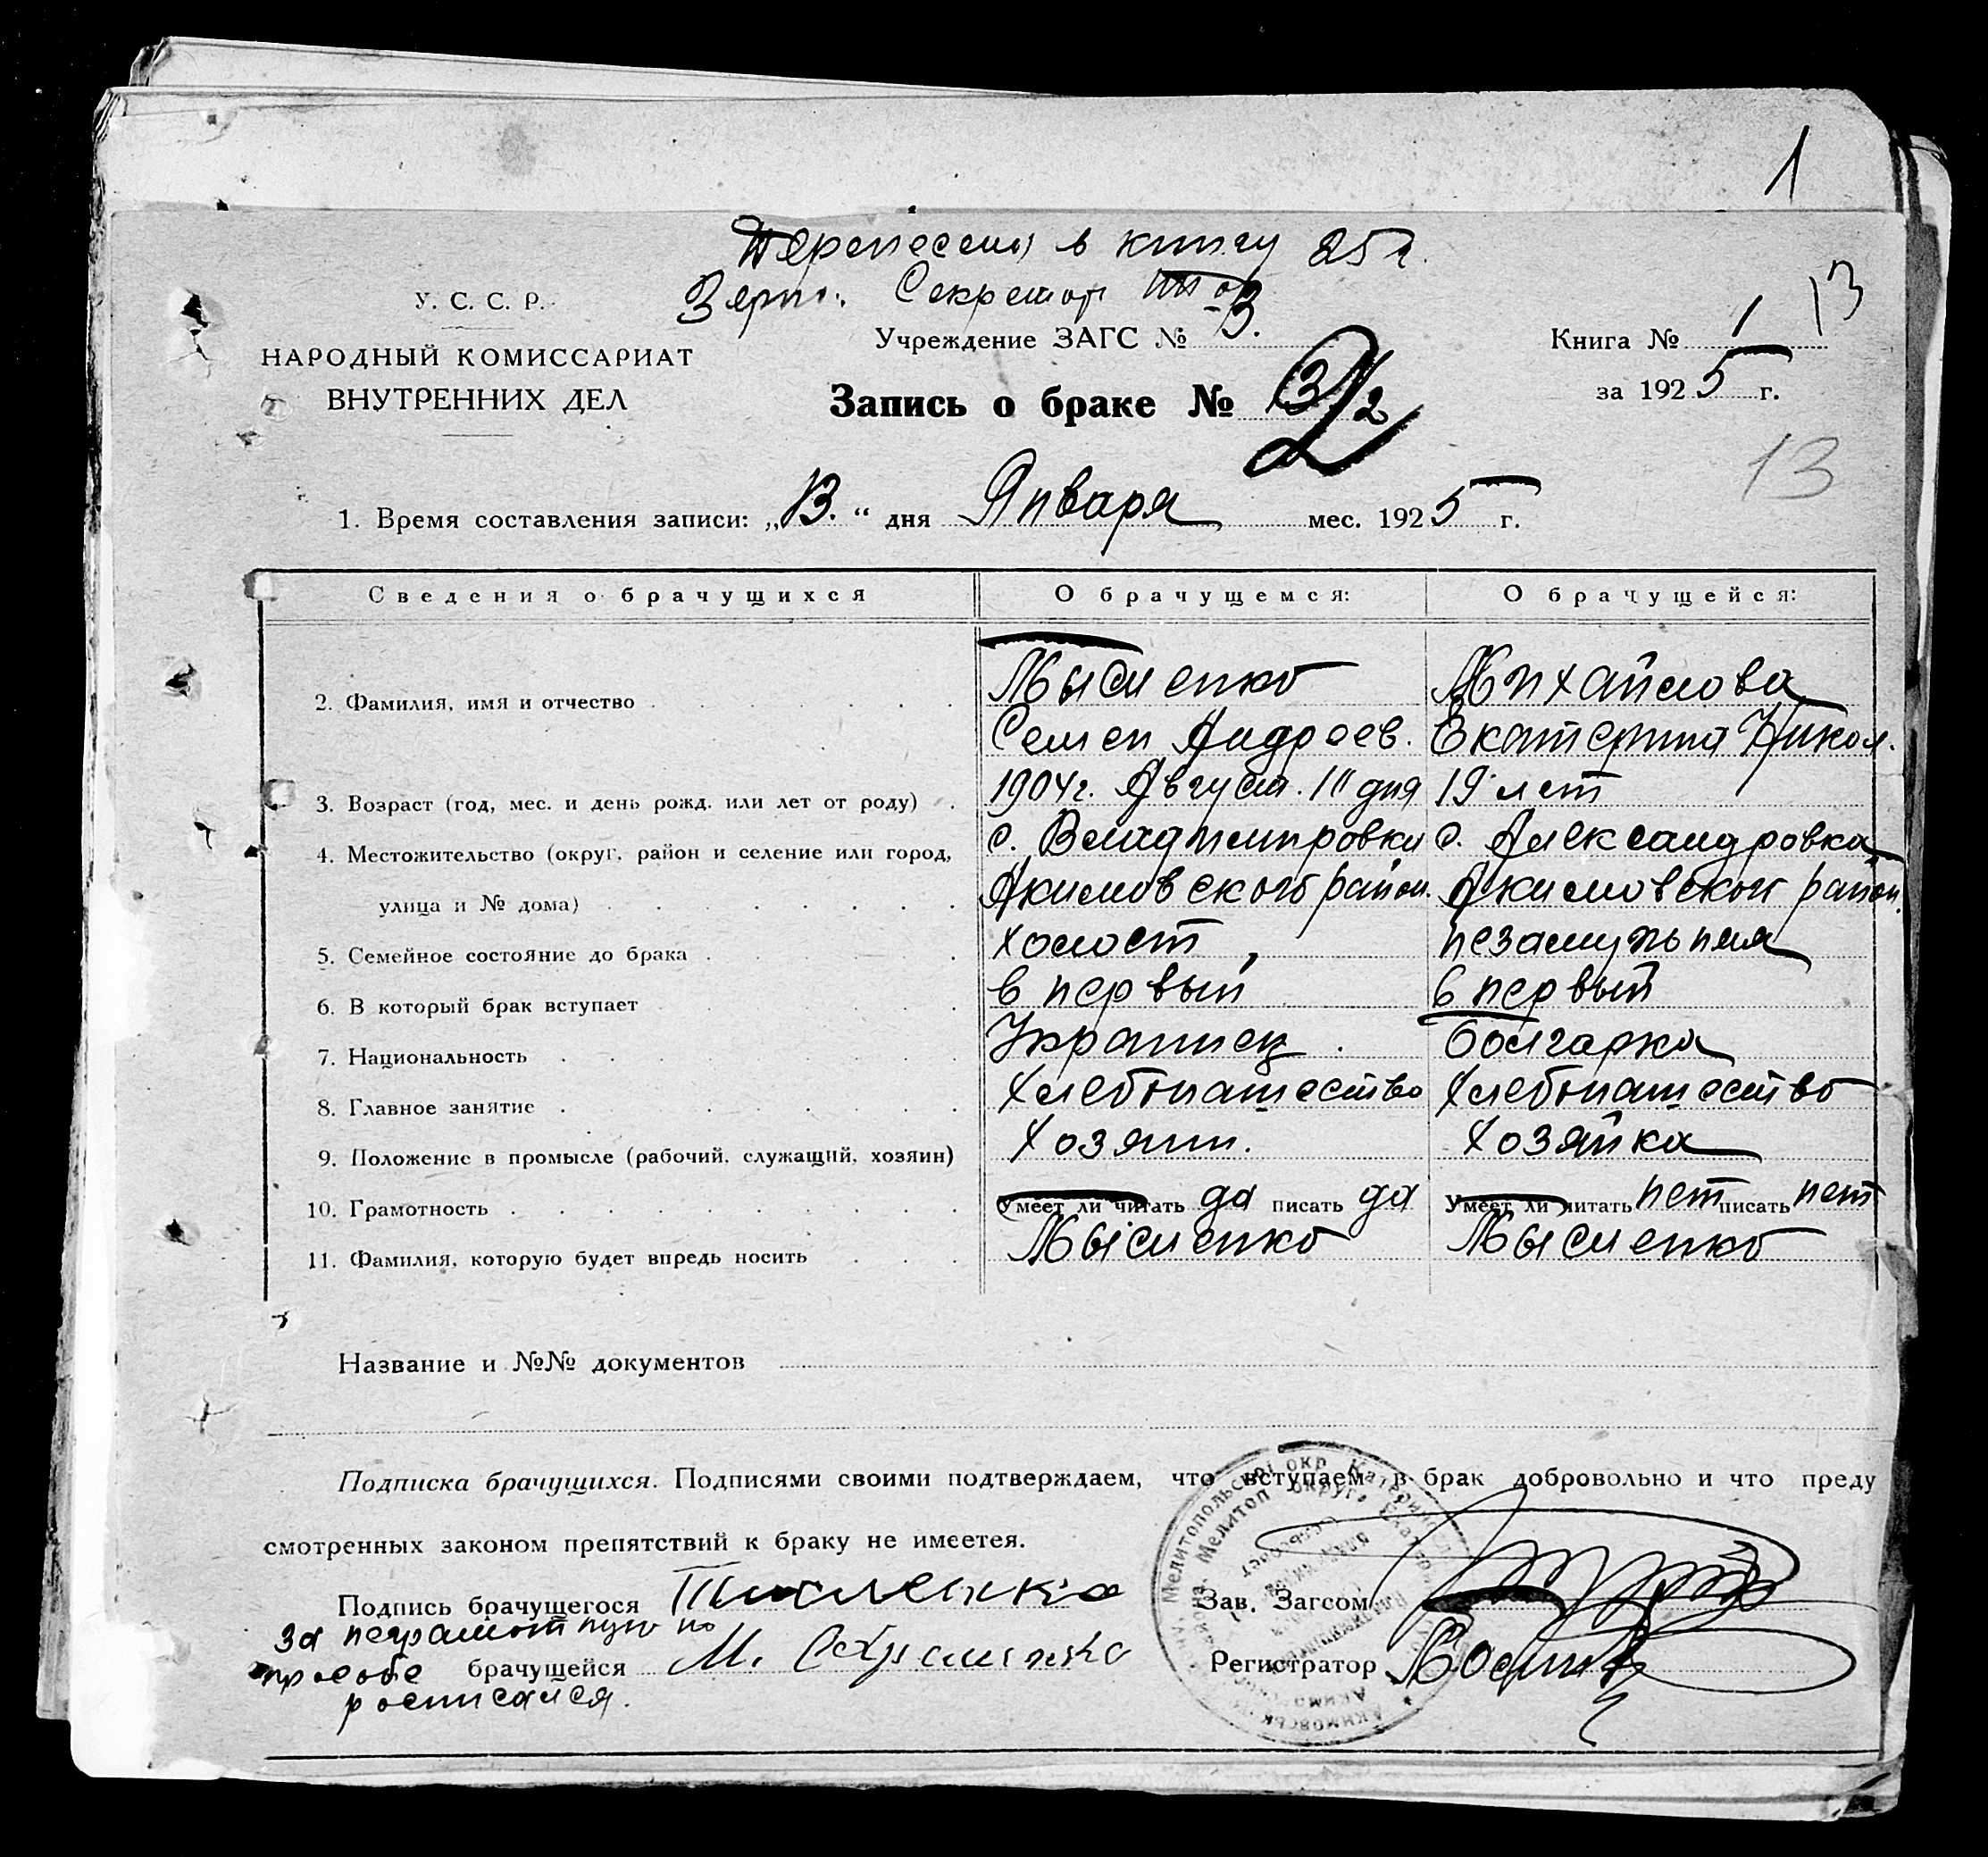 1
Перенесен в книгу 25 г.
Секретарь
У. С. С. Р.
13
Учреждение ЗАГС № 3.
Книга № 1
НАРОДНЫЙ КОМИССАРИАТ
ВНУТРЕННИХ ДЕЛ
Запись о браке № 3/2
2
за 1925 г.
13
1. Время составления записи: „13.“ дня Января мес. 1925 г.
Сведения о брачущихся О брачущемся: О брачущейся:
2. Фамилия, имя и отчество Мысленко Михайлова
Семен Андреев. Екатерина Никол.
3. Возраст (год, мес. и день рожд. или лет от роду) 1904 г. Август. 11 дня 19 лет
4. Местожительство (округ, район и селение или город, с. Владимировки с. Александровка
улица и № дома) Акимовского район. Акимовского район.
5. Семейное состояние до брака холост, незамужняя
6. В который брак вступает в первый в первый
7. Национальность Украинец. болгарка
8. Главное занятие Хлебопашество Хлебопашество
9. Положение в промысле (рабочий, служащий, хозяин) Хозяин. Хозяйка
10. Грамотность Умеет ли читать да писать да Умеет ли читать нет писать нет
11. Фамилия, которую будет впредь носить Мысленко Мысленко
Название и №№ документов
Подписка брачущихся. Подписями своими подтверждаем, что вступаем в брак добровольно и что преду
смотренных законом препятствий к браку не имеетея.
Подпись брачущегося Зав. Загсом
за неграмотную по
просьбе брачущейся М. Регистратор
росписался.